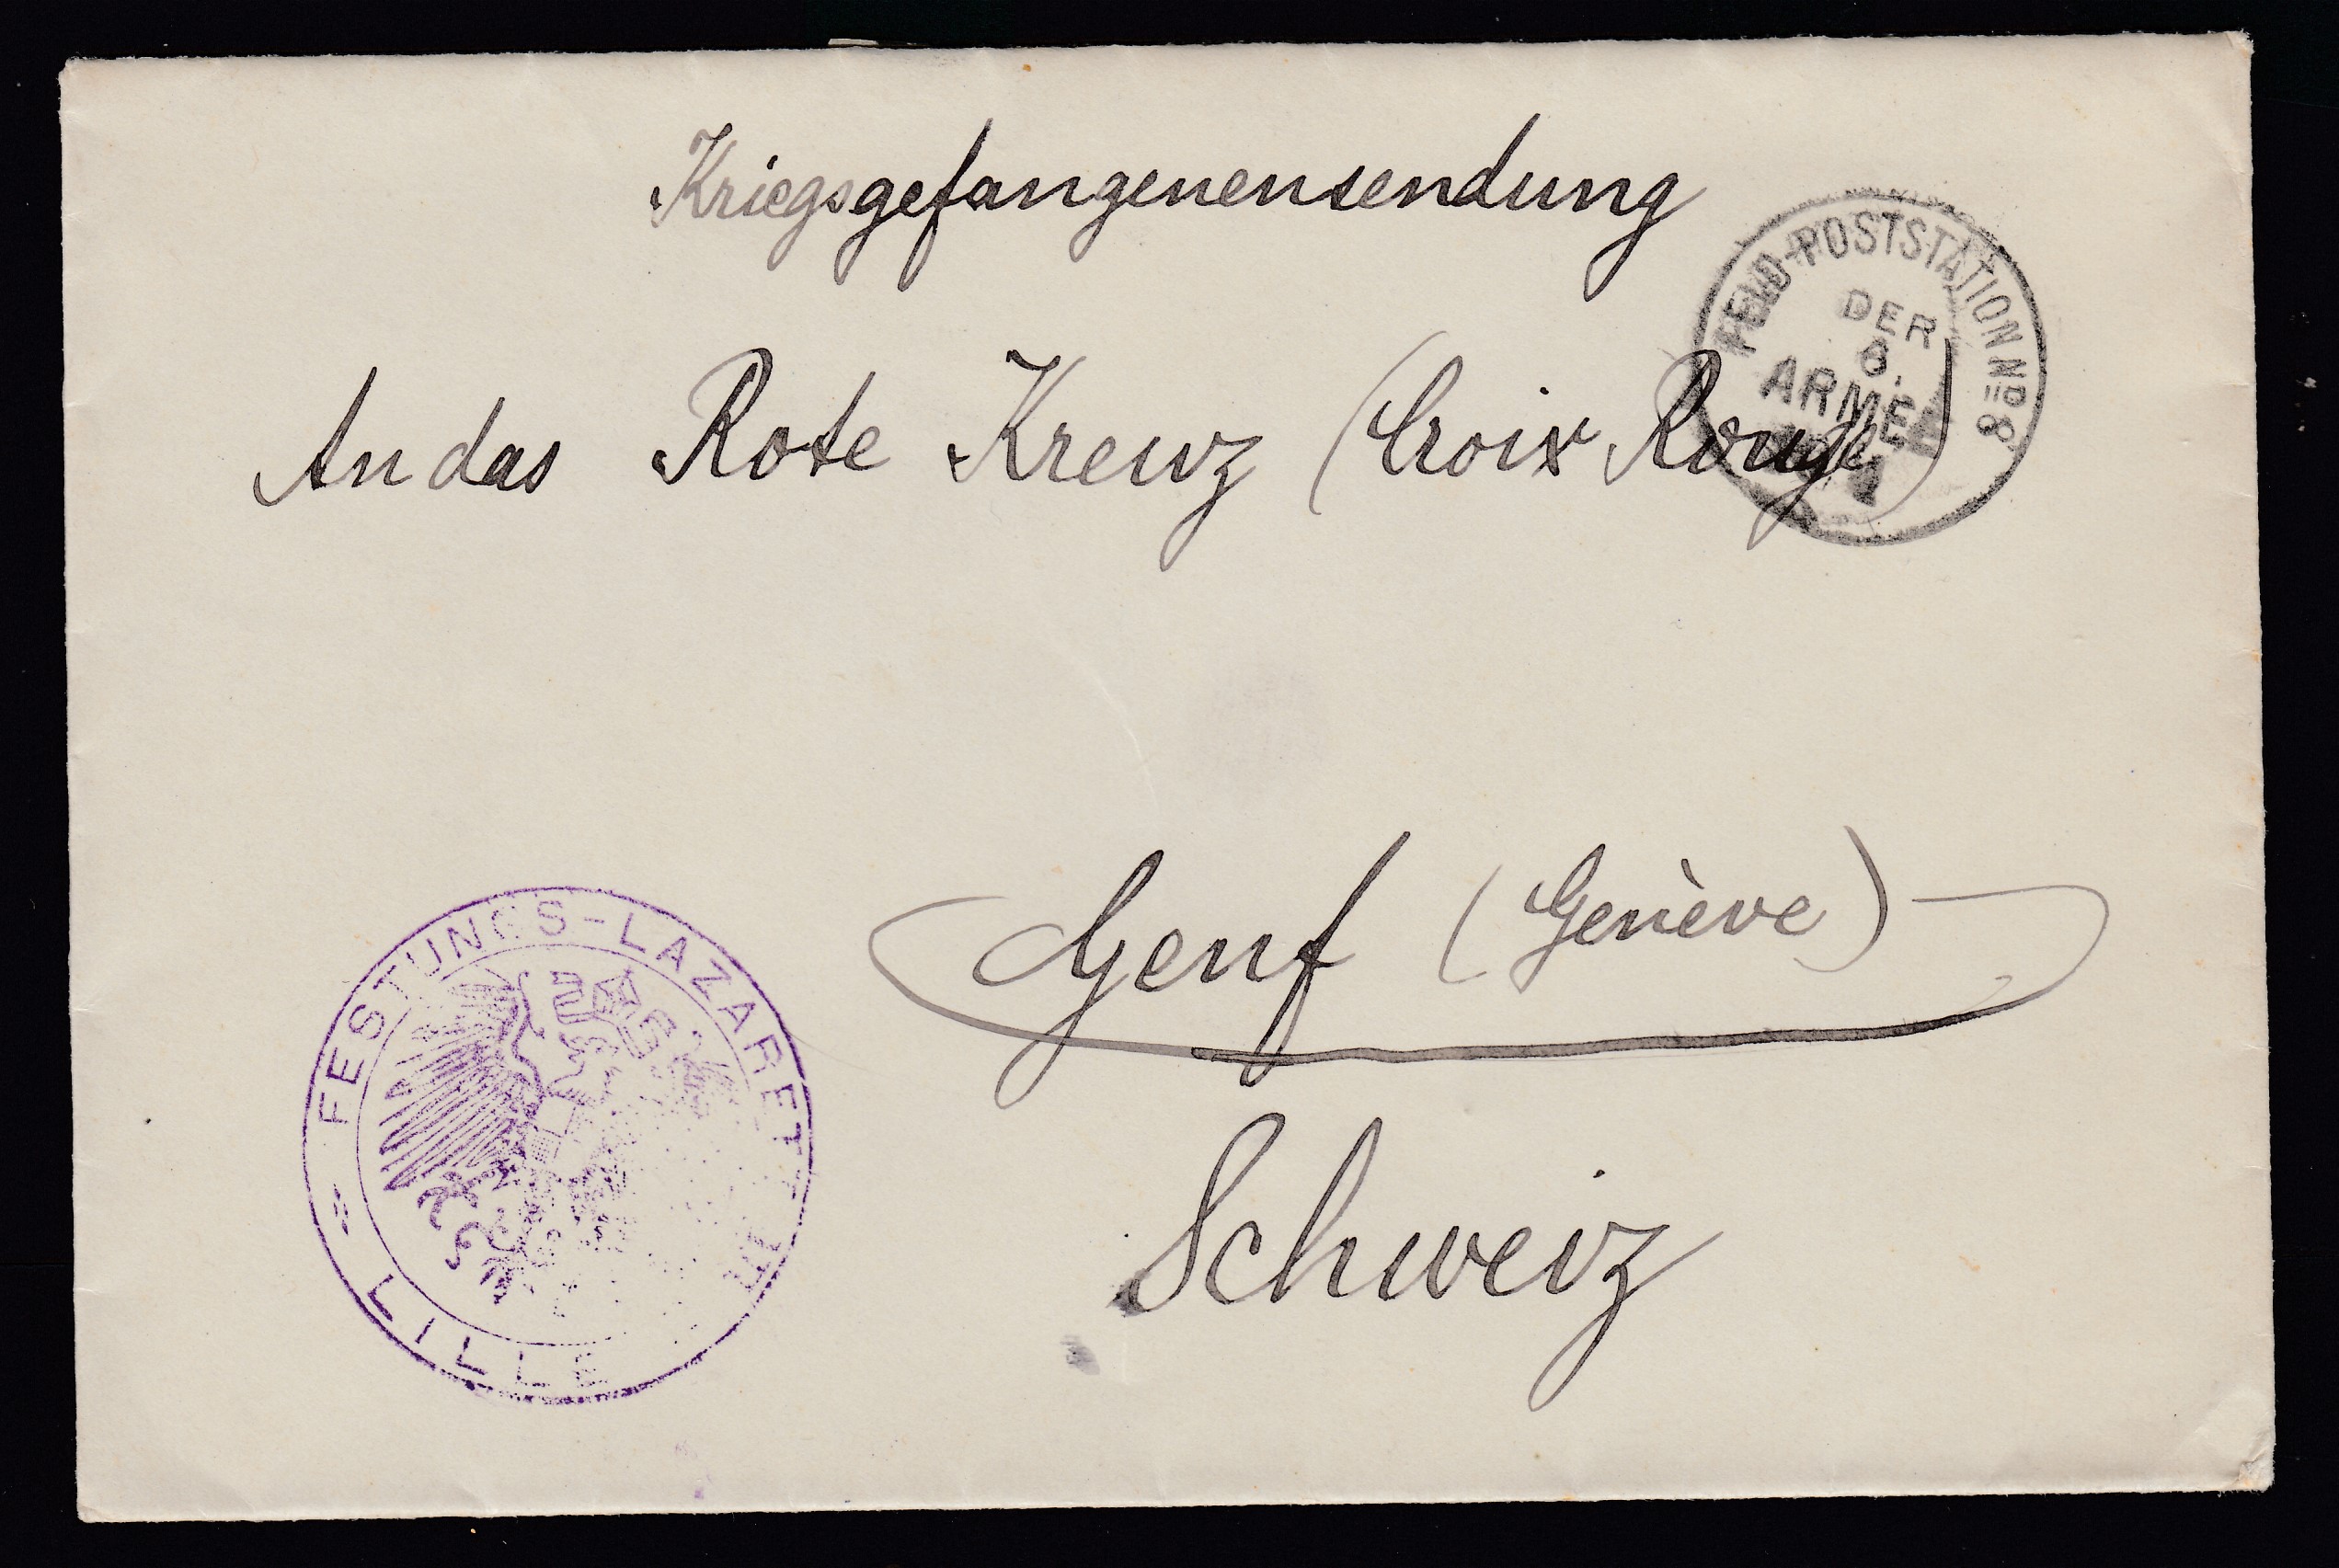 Kriegsgefangenensendung
FELD-POSTSTATION No 8
DER
6.
ARMEE
An das Rote Kreuz (Croix Rouge)
Genf (Genève)
Schweiz
FESTUNGS-LAZARETT
LILLE